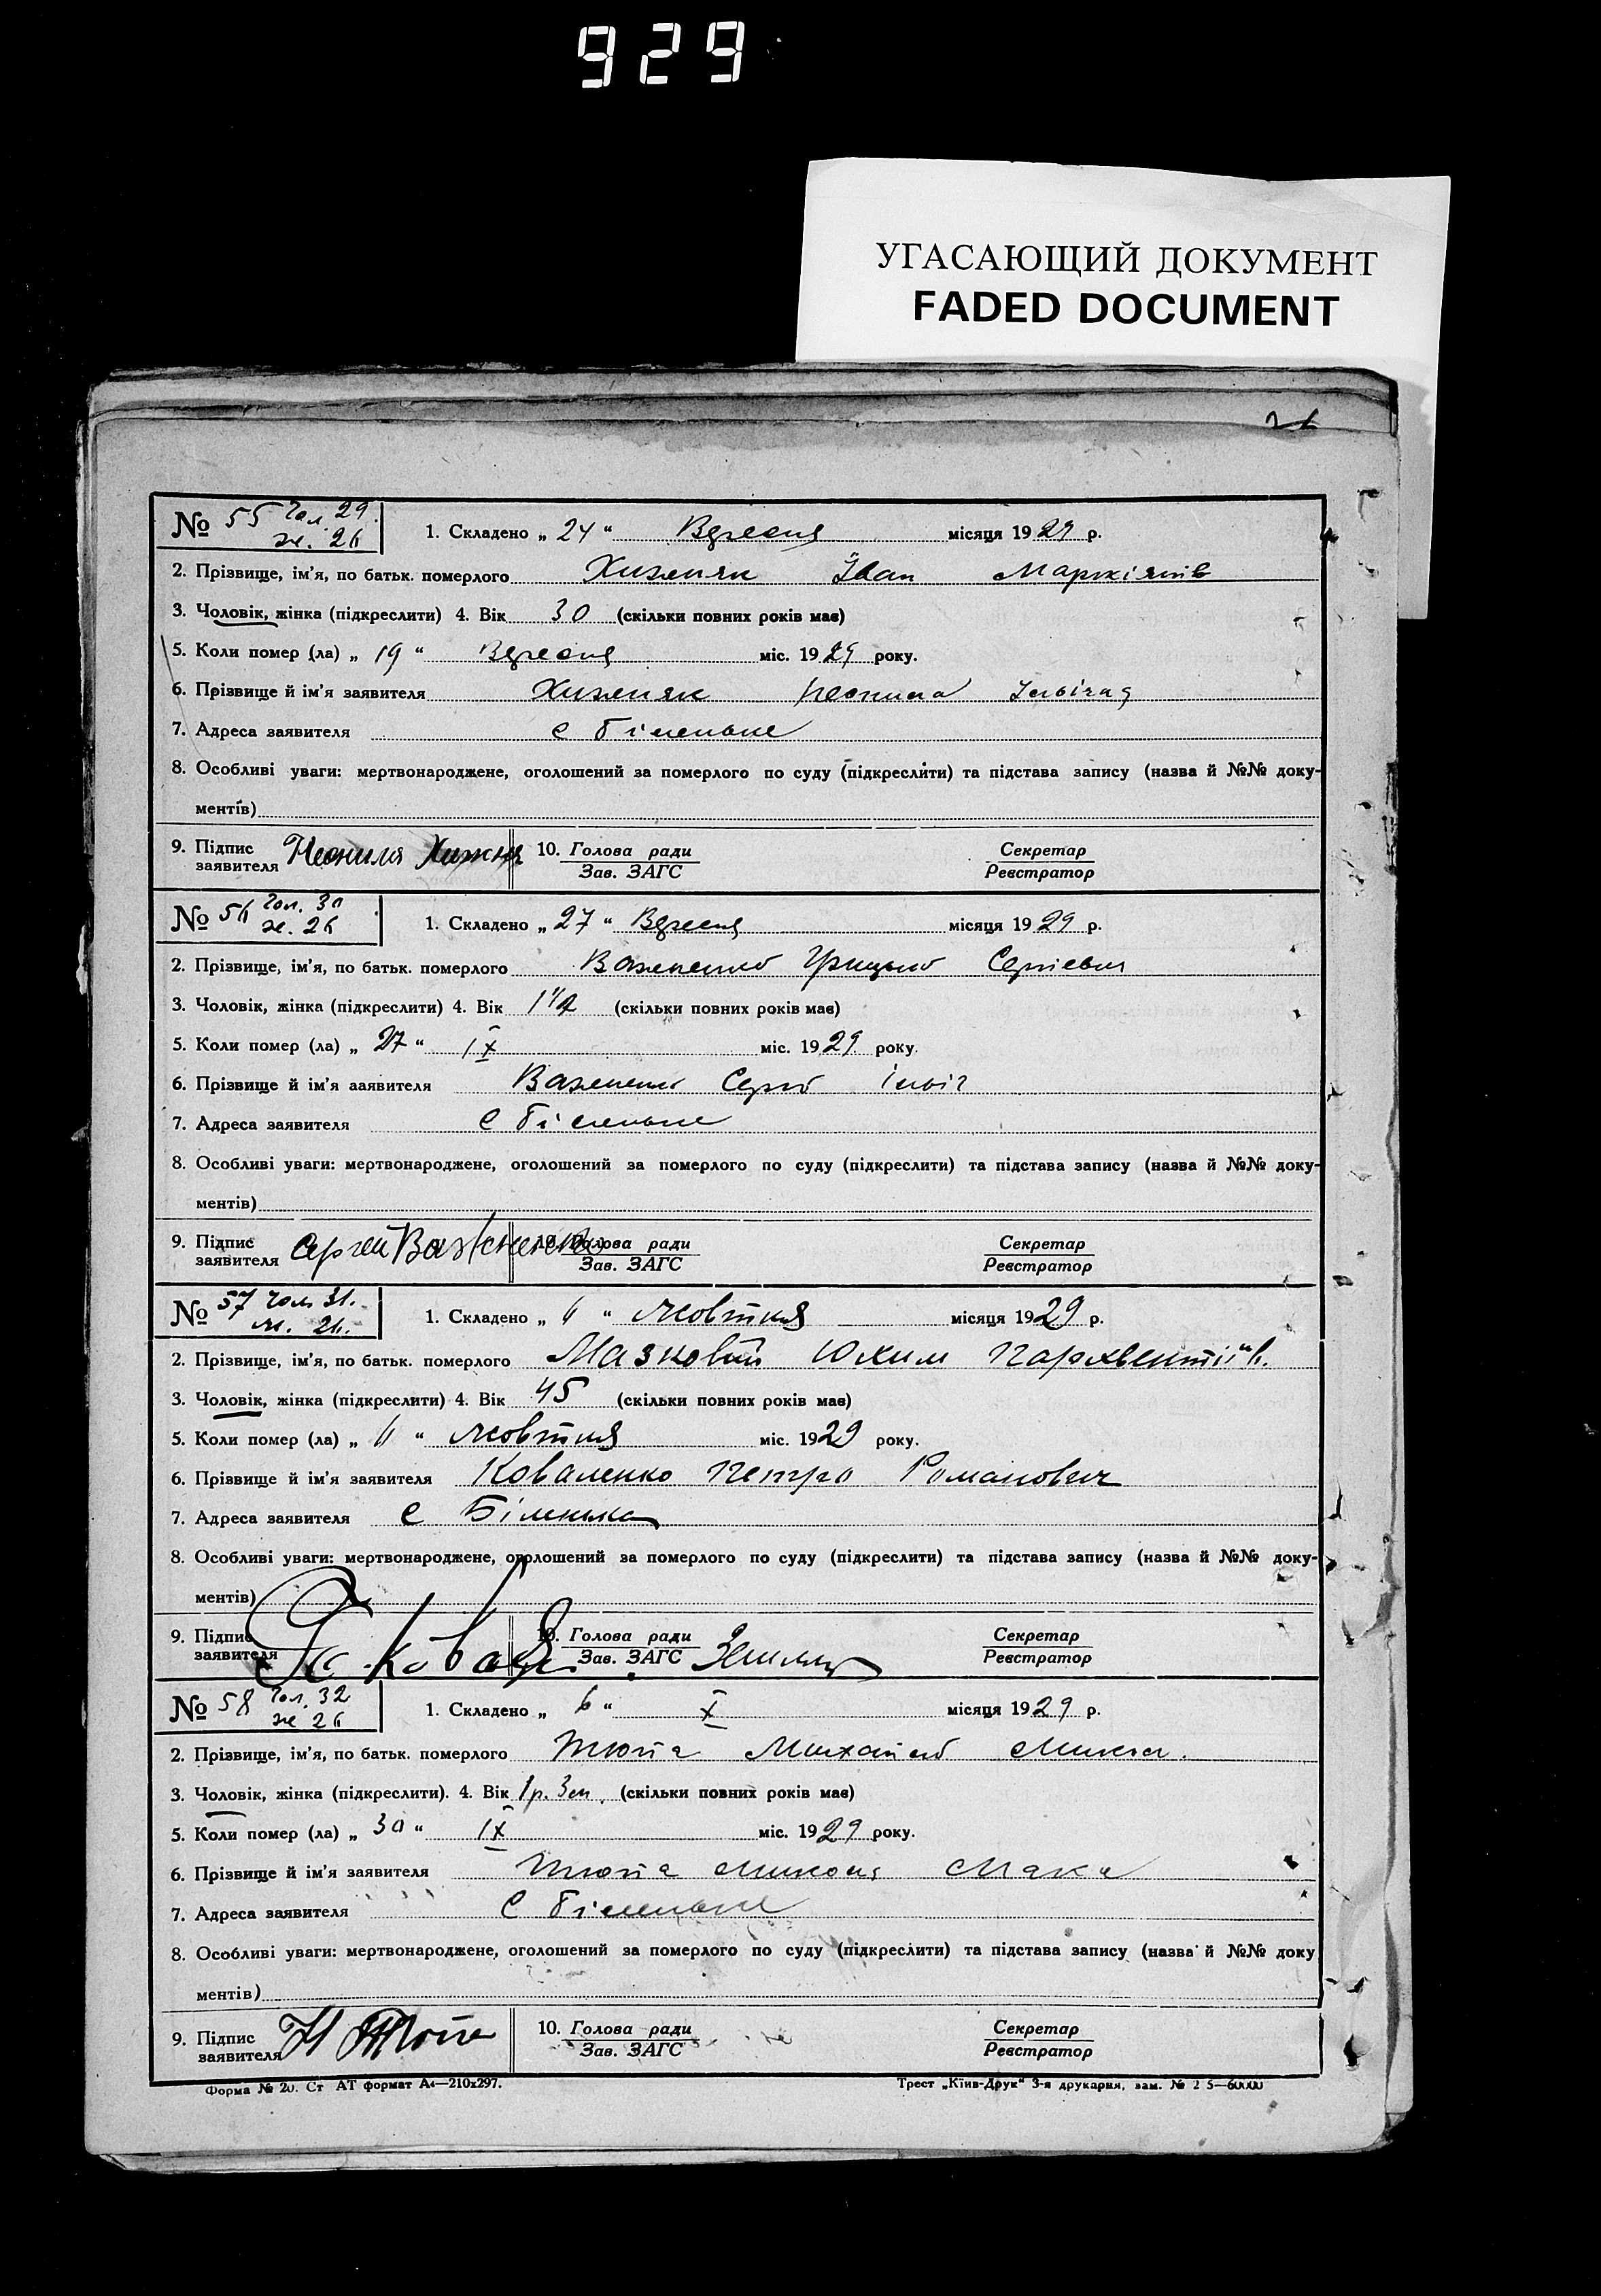 929
УГАСАЮЩИЙ ДОКУМЕНТ
FADED DOCUMENT
№ 55 Чол. 29.
ж. 26
1. Складено „ 24 “ Вересня місяця 1929 р.
2. Прізвище, ім’я, по батьк. померлого Хижняк Іван Маркіянів
3. Чоловік, жінка (підкреслити) 4. Вік 30 (скільки повних років має)
5. Коли помер (ла) „ 19 “ Вересня міс. 1929 року.
6. Прізвище й ім’я заявителя Хижняк Неонила
7. Адреса заявителя с Біленьке
8. Особливі уваги: мертвонароджене, оголошений за померлого по суду (підкреслити) та підстава запису (назва й №№ доку-
ментів)
9. Підпис заявителя Неонила Хижня 10. Голова ради Секретар
Зав. ЗАГС Реєстратор
№ 56 Чол. 30
ж. 26
1. Складено „ 27 “ Вересня місяця 1929 р.
2. Прізвище, ім’я, по батьк. померлого Важненко Грицько Сергієвич
3. Чоловік, жінка (підкреслити) 4. Вік 1 1/2 (скільки повних років має)
5. Коли помер (ла) „ 27 “ IX міс. 1929 року.
6. Прізвище й ім’я аявителя Важненко Сергій
7. Адреса заявителя с Біленьке
8. Особливі уваги: мертвонароджене, оголошений за померлого по суду (підкреслити) та підстава запису (назва й №№ доку-
ментів)
9. Підпис заявителя Сергей Важненко 10. Голова ради Секретар
Зав. ЗАГС Реєстратор
№ 57 Чол. 31.
ж. 26.
1. Складено „ “ Жовтня місяця 1929 р.
2. Прізвище, ім’я, по батьк. померлого Мазковий Юхим Пархвентіїв.
3. Чоловік, жінка (підкреслити) 4. Вік 45 (скільки повних років має)
5. Коли помер (ла) „ “ Жовтня міс. 1929 року.
6. Прізвище й ім’я заявителя Коваленко Петро Романович
7. Адреса заявителя с Біленька
8. Особливі уваги: мертвонароджене, оголошений за померлого по суду (підкреслити) та підстава запису (назва й №№ доку-
ментів)
9. Підпис заявителя 10. Голова ради Секретар
Зав. ЗАГС Реєстратор
№ 58 Чол. 32
ж 26
1. Складено „ 6 “ X місяця 1929 р.
2. Прізвище, ім’я, по батьк. померлого Тюпа Михайло Микол.
3. Чоловік, жінка (підкреслити). 4. Вік 1 р. 3 м. (скільки повних років має)
5. Коли помер (ла) „ 30 “ IX міс. 1929 року.
6. Прізвище й ім’я заявителя Тюпа Микола
7. Адреса заявителя с Біленьке
8. Особливі уваги: мертвонароджене, оголошений за померлого по суду (підкреслити) та підстава запису (назва й №№ доку
ментів)
9. Підпис заявителя Н Тюпа 10. Голова ради Секретар
Зав. ЗАГС Реєстратор
Форма № 20. Ст АТ формат А4—210х297. Трест „Київ-Друк“ 3-я друкарня, зам. №